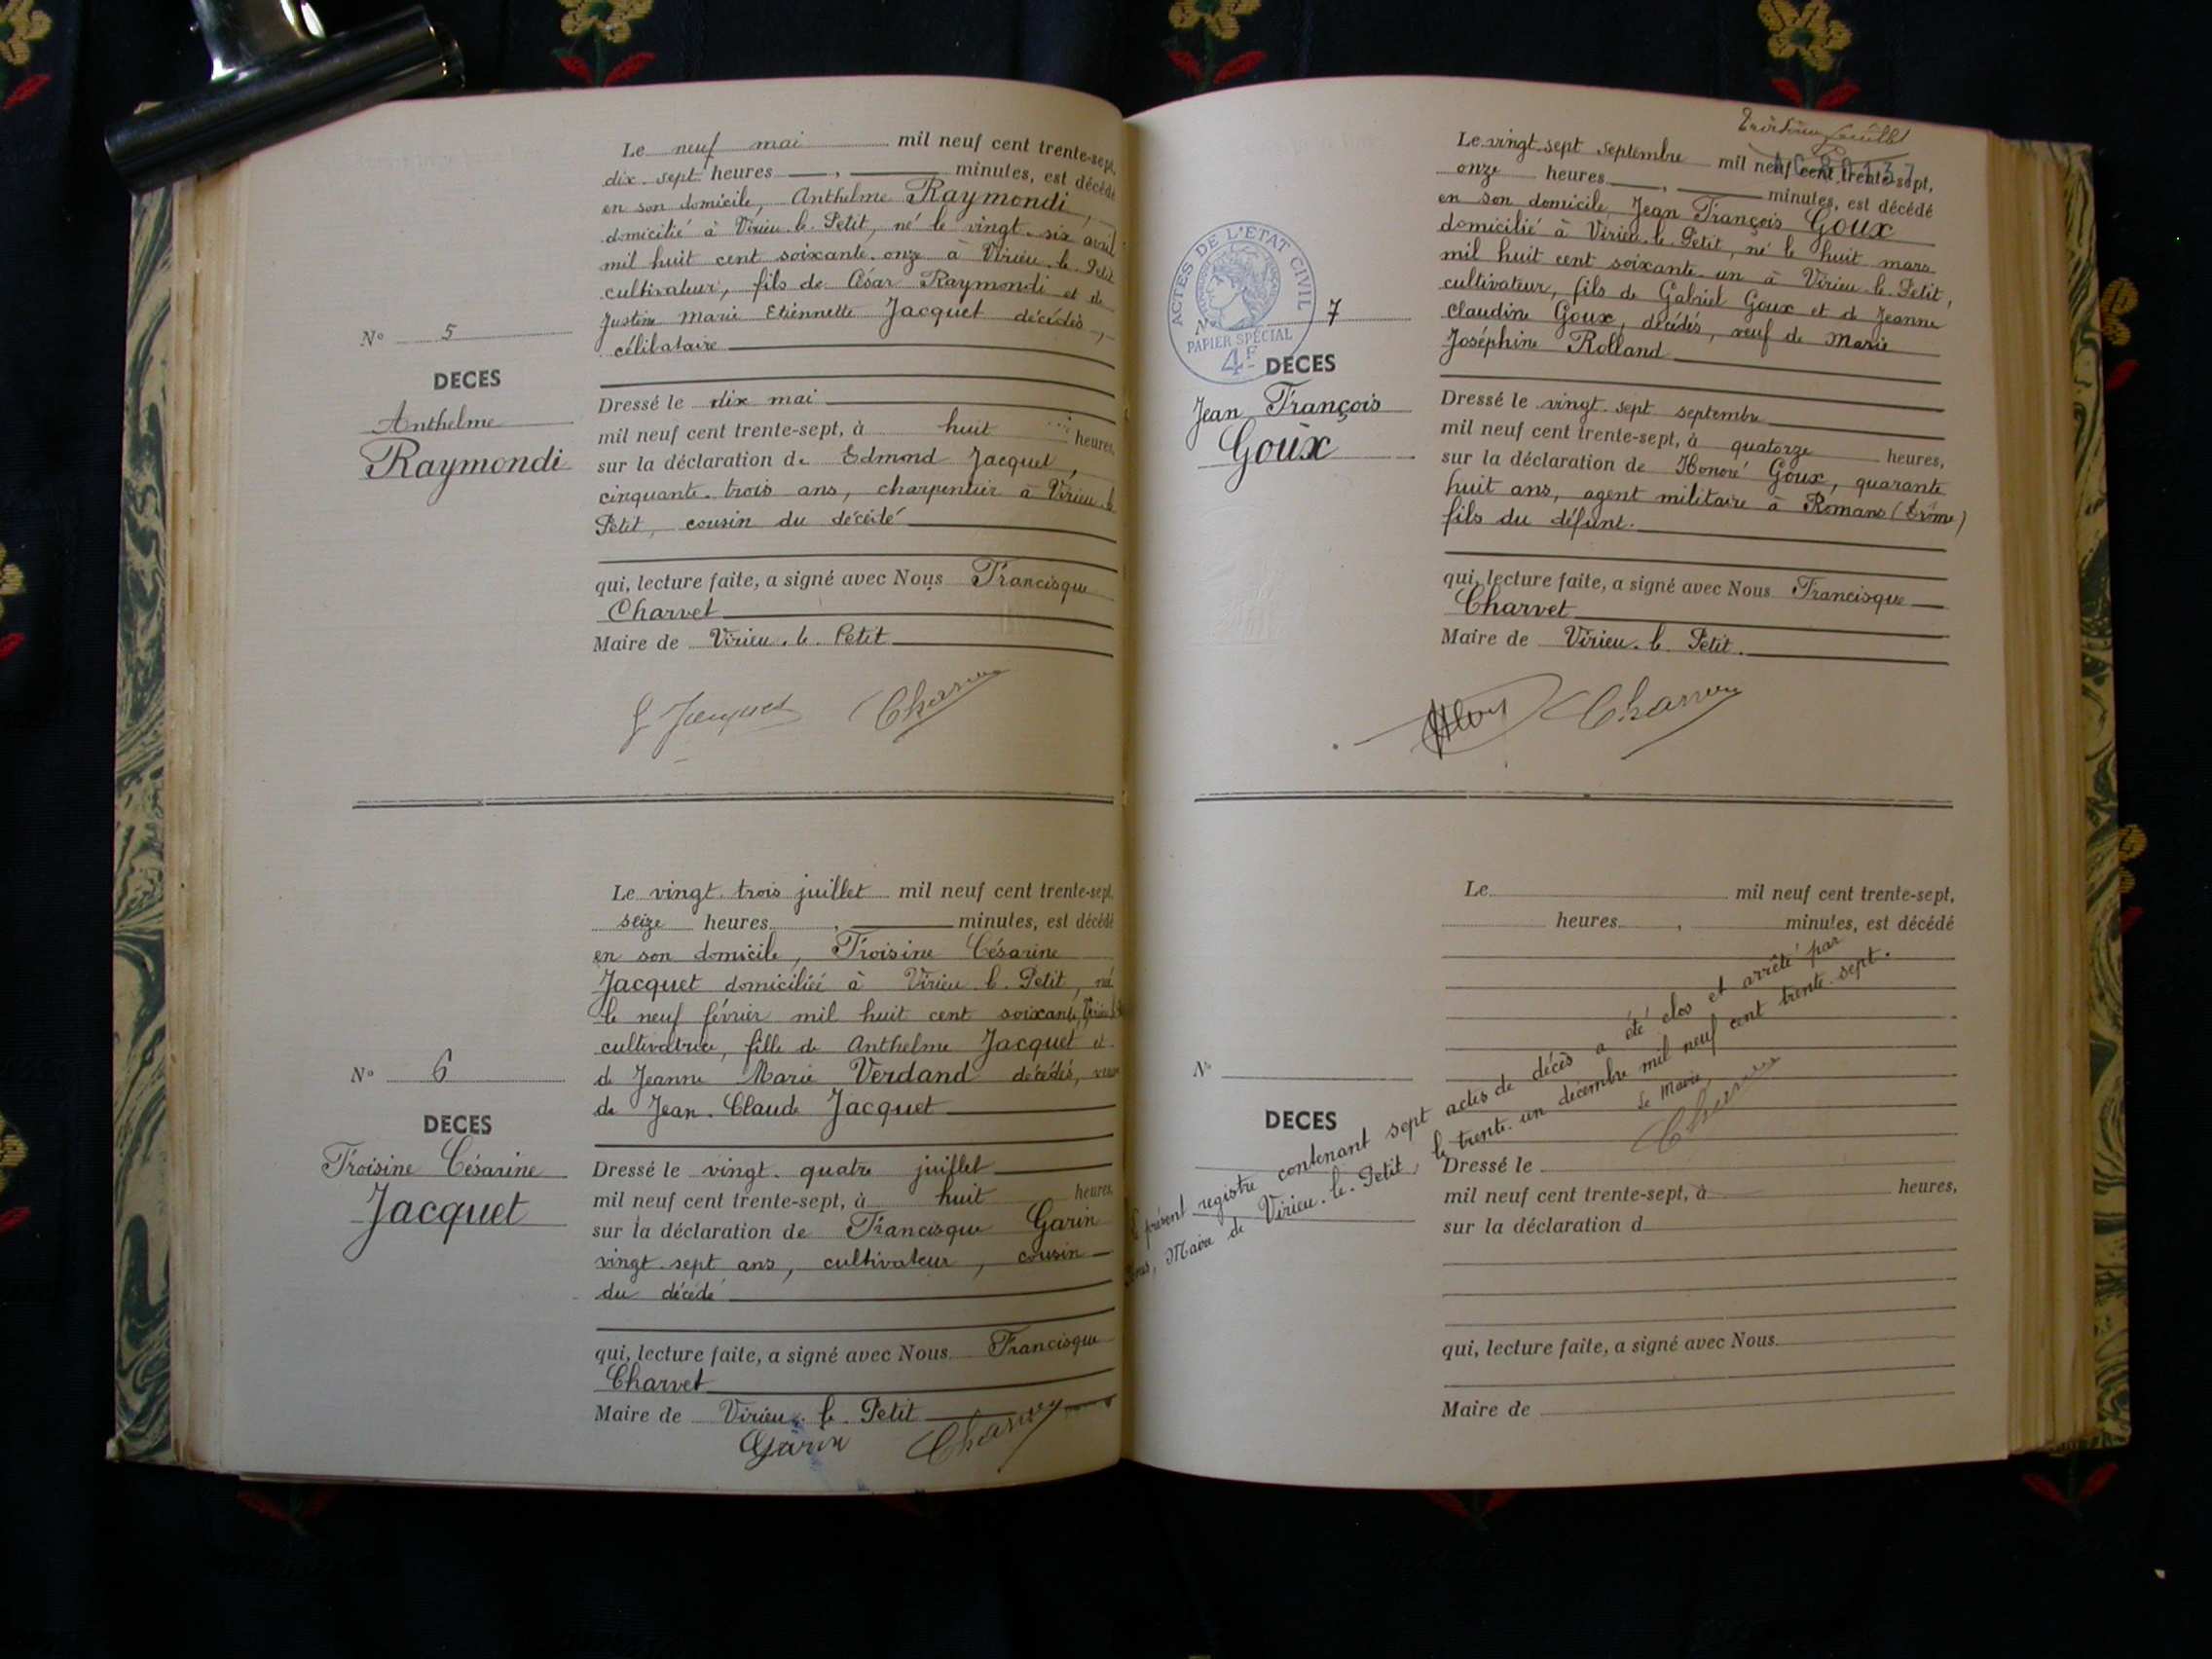 Le neuf mai mil neuf cent trente-sept,
dix-sept heures , minutes, est décédé
en son domicile, Anthelme Raymondi,
domicilié à Virieu-le-Petit, né le vingt-six avril
mil huit cent soixante-onze à Virieu-le-Petit
cultivateur, fils de César Raymondi et de
Justine Marie Etiennette Jacquet décédés,
célibataire
N° 5
DECES
Anthelme
Raymondi
Dressé le dix mai
mil neuf cent trente-sept, à huit heures,
sur la déclaration de Edmond Jacquet,
cinquante-trois ans, charpentier à Virieu-le
Petit, cousin du décédé
qui, lecture faite, a signé avec Nous Francisque
Charvet
Maire de Virieu-le-Petit
Jacquet Charvet
Le vingt-trois juillet mil neuf cent trente-sept,
seize heures , minutes, est décédé
en son domicile, Troisine Césarine
Jacquet domiciliée à Virieu-le-Petit, né
le neuf février mil huit cent soixante,
cultivatrice, fille de Anthelme Jacquet et
de Jeanne Marie Verdand décédés, veuve
de Jean-Claude Jacquet
N° 6
DECES
Troisine Césarine
Jacquet
Dressé le vingt-quatre juillet
mil neuf cent trente-sept, à huit heures,
sur la déclaration de Francisque Garin
vingt-sept ans, cultivateur, cousin
du décédé
qui, lecture faite, a signé avec Nous Francisque
Charvet
Maire de Virieu-le-Petit
Garin Charvet
Le vingt-sept septembre mil neuf cent trente-sept,
onze heures , minutes, est décédé
en son domicile Jean François Goux
domicilié à Virieu-le-Petit, né le huit mars
mil huit cent soixante-un à Virieu-le-Petit,
cultivateur, fils de Gabriel Goux et de Jeanne
Claudine Goux, décédés, veuf de Marie
Joséphine Rolland
ACTES DE L'ETAT CIVIL
PAPIER SPÉCIAL
4F
N° 7
DECES
Jean François
Goux
Dressé le vingt-sept septembre
mil neuf cent trente-sept, à quatorze heures,
sur la déclaration de Honoré Goux, quarante
huit ans, agent militaire à Romans (Drôme)
fils du défunt.
qui, lecture faite, a signé avec Nous Francisque
Charvet
Maire de Virieu-le-Petit.
Charvet
Le mil neuf cent trente-sept,
heures , minutes, est décédé
N°
DECES
Dressé le
mil neuf cent trente-sept, à heures,
sur la déclaration d
qui, lecture faite, a signé avec Nous
Maire de
présent registre contenant sept actes de décès a été clos et arrêté par
Nous, Maire de Virieu-le-Petit, le trente-un décembre mil neuf cent trente-sept.
Le Maire
Charvet